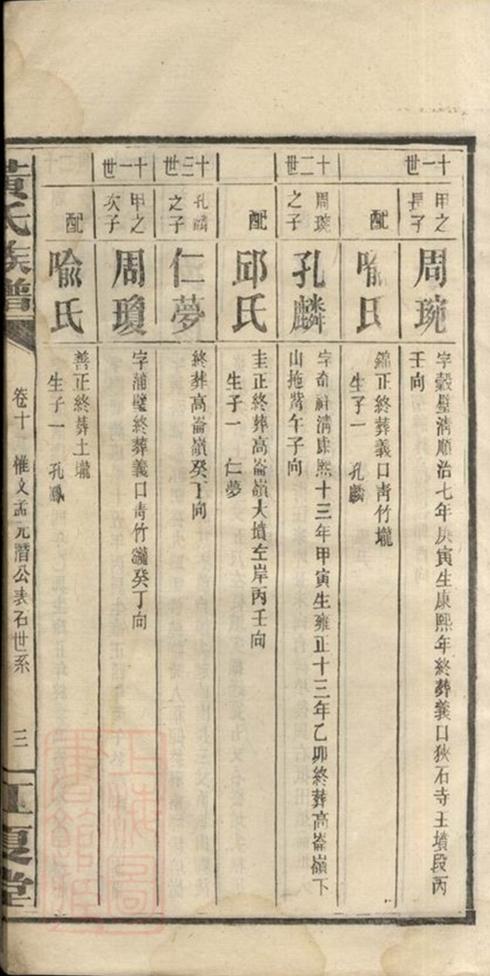 十一世
甲之長子
周琬
字縠璧淸順治七年庚寅生康熙年終葬義口狹石寺王墳段丙
壬向
配
喻氏
錦正終葬義口靑竹壠
生子一 孔麟
十二世
周琬之子
孔麟
字奇社淸康熙十三年甲寅生雍正十三年乙卯終葬高崙嶺下
山拖崀午子向
配
邱氏
圭正終葬高崙嶺大墳左岸丙壬向
生子一 仁夢
十三世
孔麟之子
仁夢
終葬高崙嶺癸丁向
十一世
甲之次子
周瓊
字浦璧終葬義口靑竹壠癸丁向
配
喻氏
善正終葬土壠
生子一 孔鳳
黃氏族譜
卷十一 惟文孟元潛公表石世系
三
江夏堂